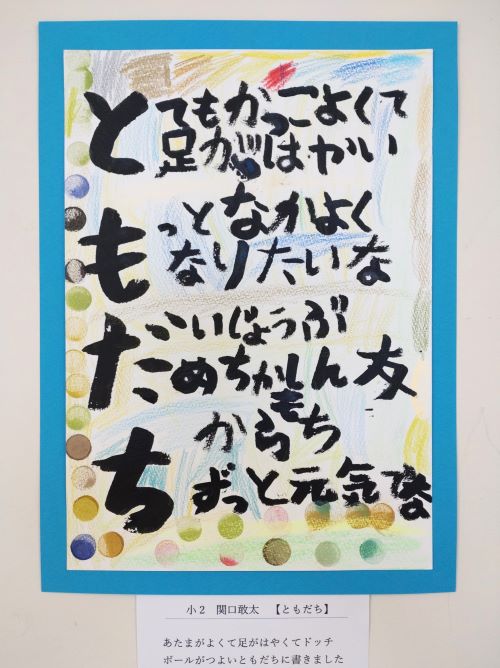 とてもかっこよくて
足がはやい
もっとなかよく
なりたいな
だいじょうぶ
めちかしん友
ちからもち
ずっと元気
小2 関口敢太 【ともだち】
あたまがよくて足がはやくてドッチ
ボールがつよいともだちに書きました